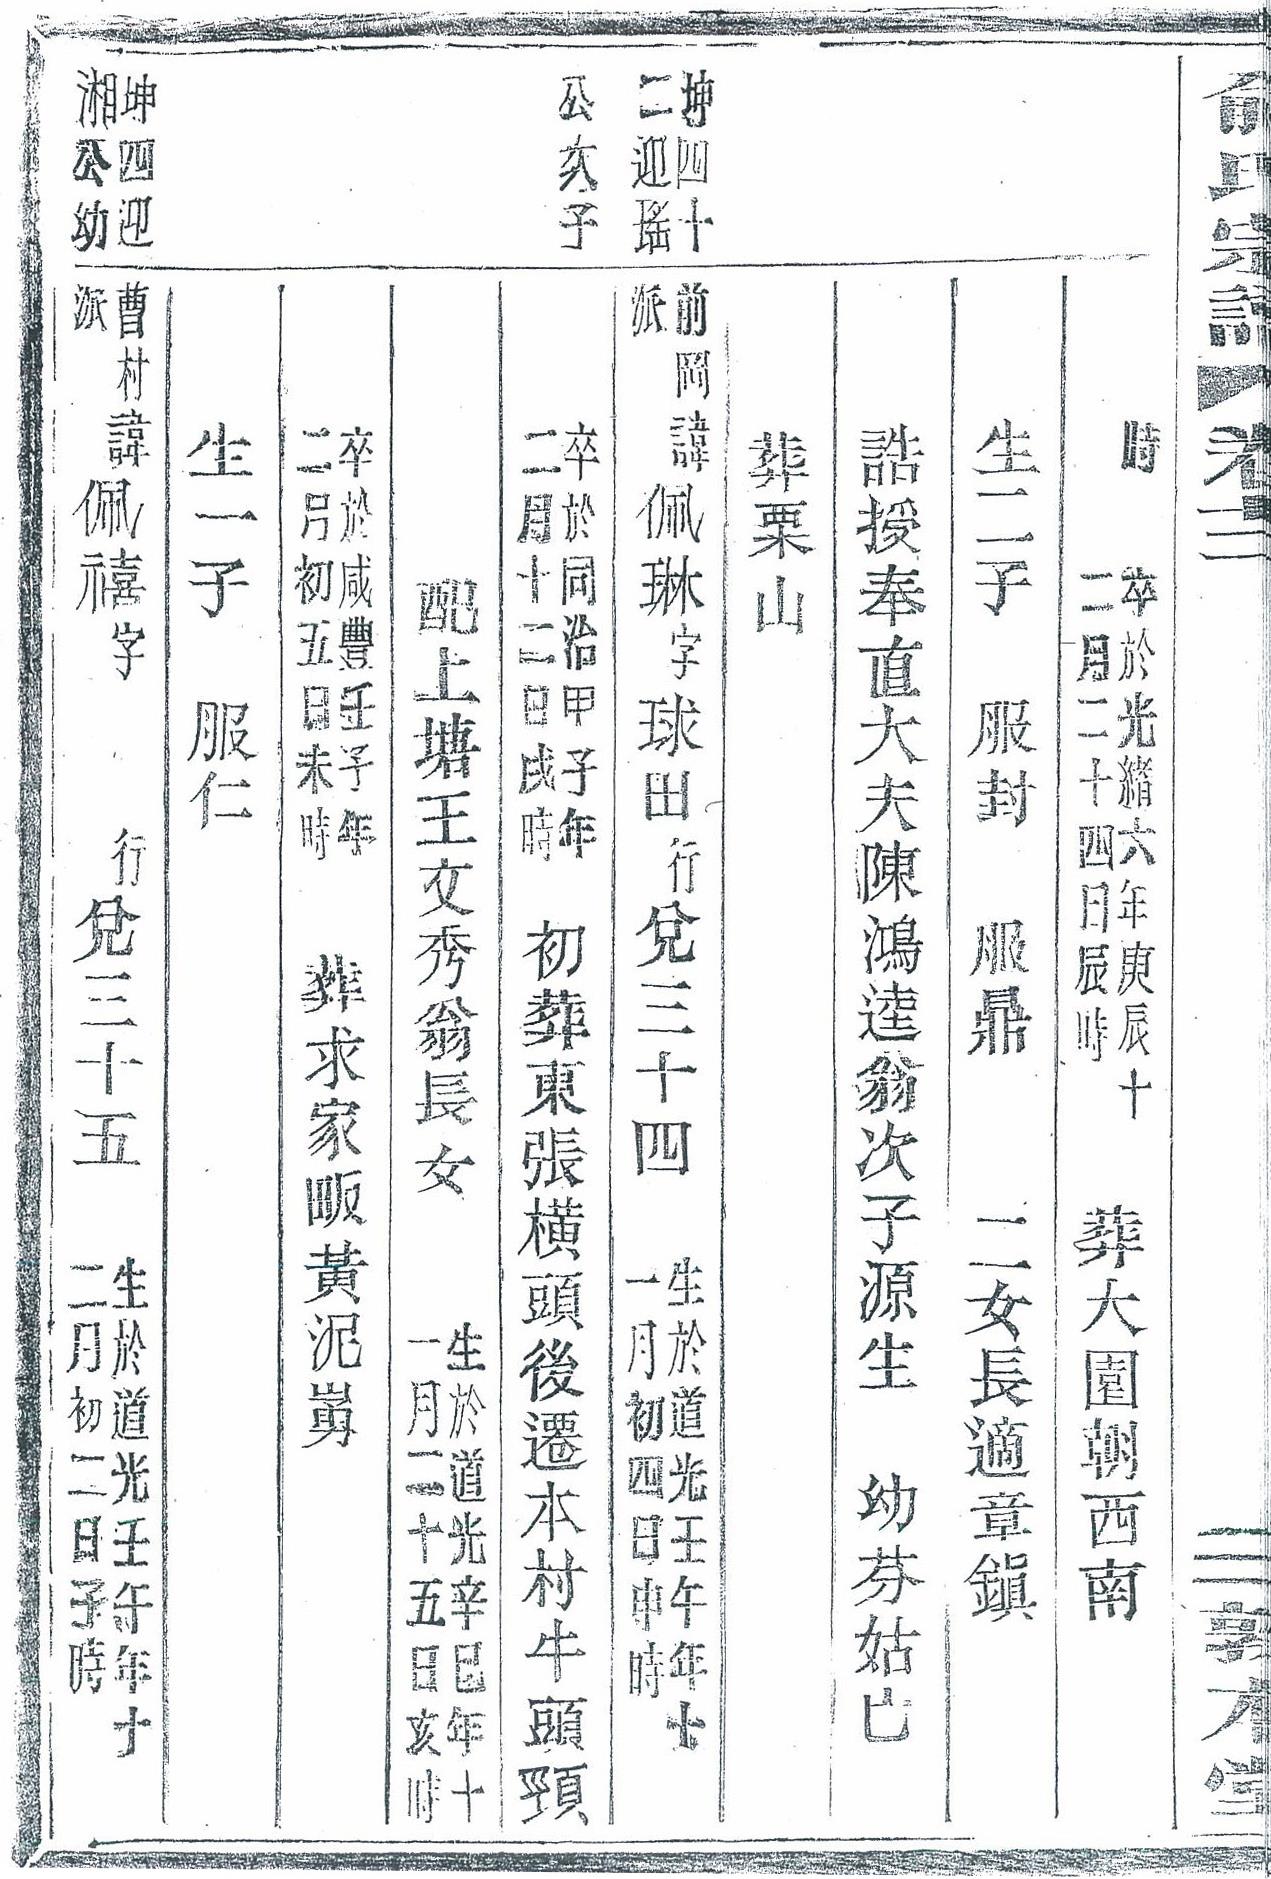 俞氏宗譜 卷三 敦本堂
時 卒於光緒六年庚辰十
二月二十四日辰時 葬大園朝西南
生二子 服封 服鼎 二女長適章鎭
誥授奉直大夫陳鴻逵翁次子源生 幼芬姑亡
葬栗山
坤四十
二迎瑤
前岡
派
諱佩琳字球田行兌三十四 生於道光壬午年十
一月初四日申時
公次子
卒於同治甲子年
二月十二日戌時 初葬東張橫頭後遷本村牛頭頸
配上塘王文秀翁長女 生於道光辛巳年十
一月二十五日亥時
卒於咸豐壬子年
二月初五日未時 葬求家畈黃泥
生一子 服仁
坤四迎
湘公幼
曹村
派
諱佩禧字 行兌三十五 生於道光壬午年十
二月初二日子時